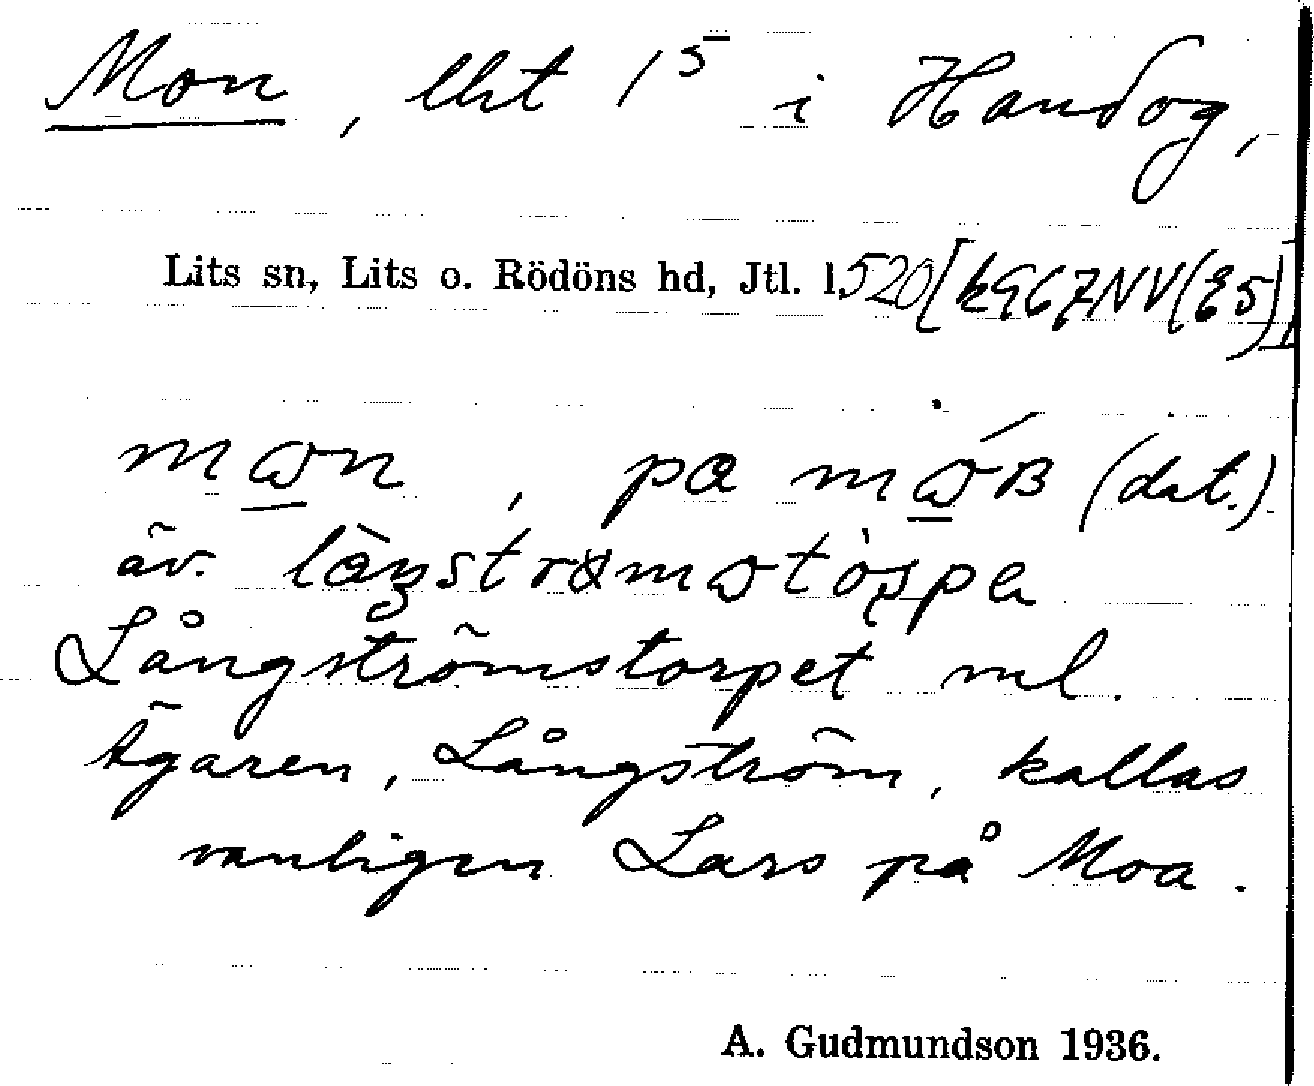 Mon, lht 1⁵ i Handog,
Lits sn, Lits o. Rödöns hd, Jtl. l. 520 [k967NV(ε5)]
pa (dat.)
äv.
Långströmstorpet ml.
Ägaren, Långström, kallas
vanligen Lars på Moa.
A. Gudmundson 1936.